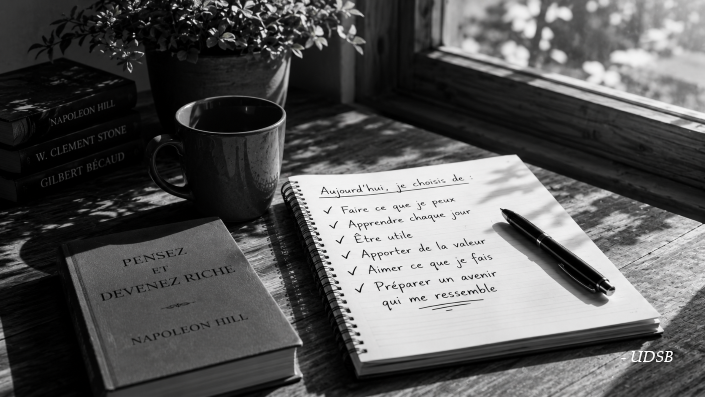 NAPOLEON HILL
W. CLEMENT STONE
GILBERT BÉCAUD
PENSEZ
ET
DEVENEZ RICHE
NAPOLEON HILL
Aujourd'hui, je choisis de :
✓ Faire ce que je peux
✓ Apprendre chaque jour
✓ Être utile
✓ Apporter de la valeur
✓ Aimer ce que je fais
✓ Préparer un avenir
qui me ressemble
- UDSB